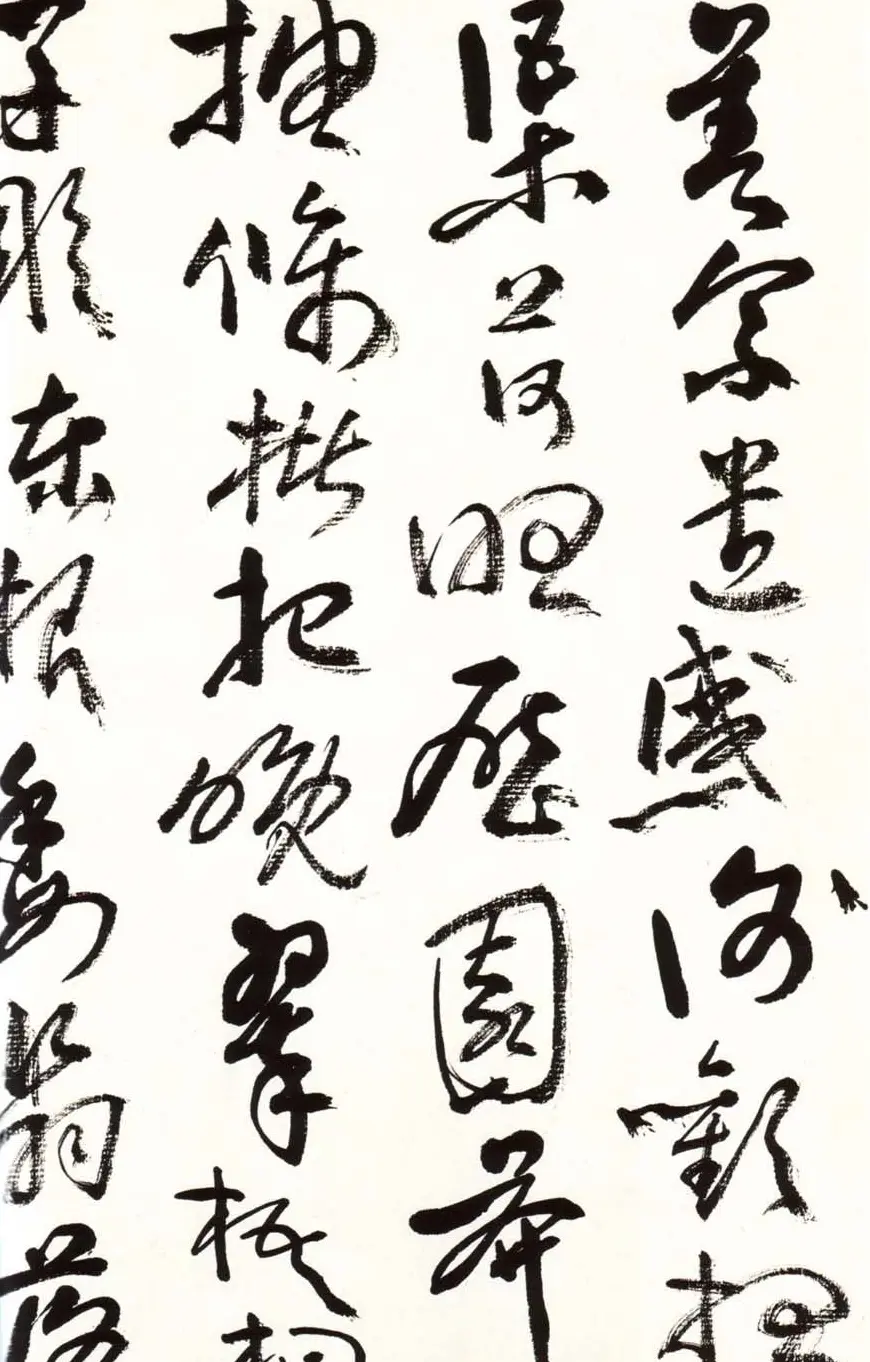 奏累遣慼謝歡招
渠荷的歷園莽
抽條枇杷晚翠梧桐
早凋陳根委翳落